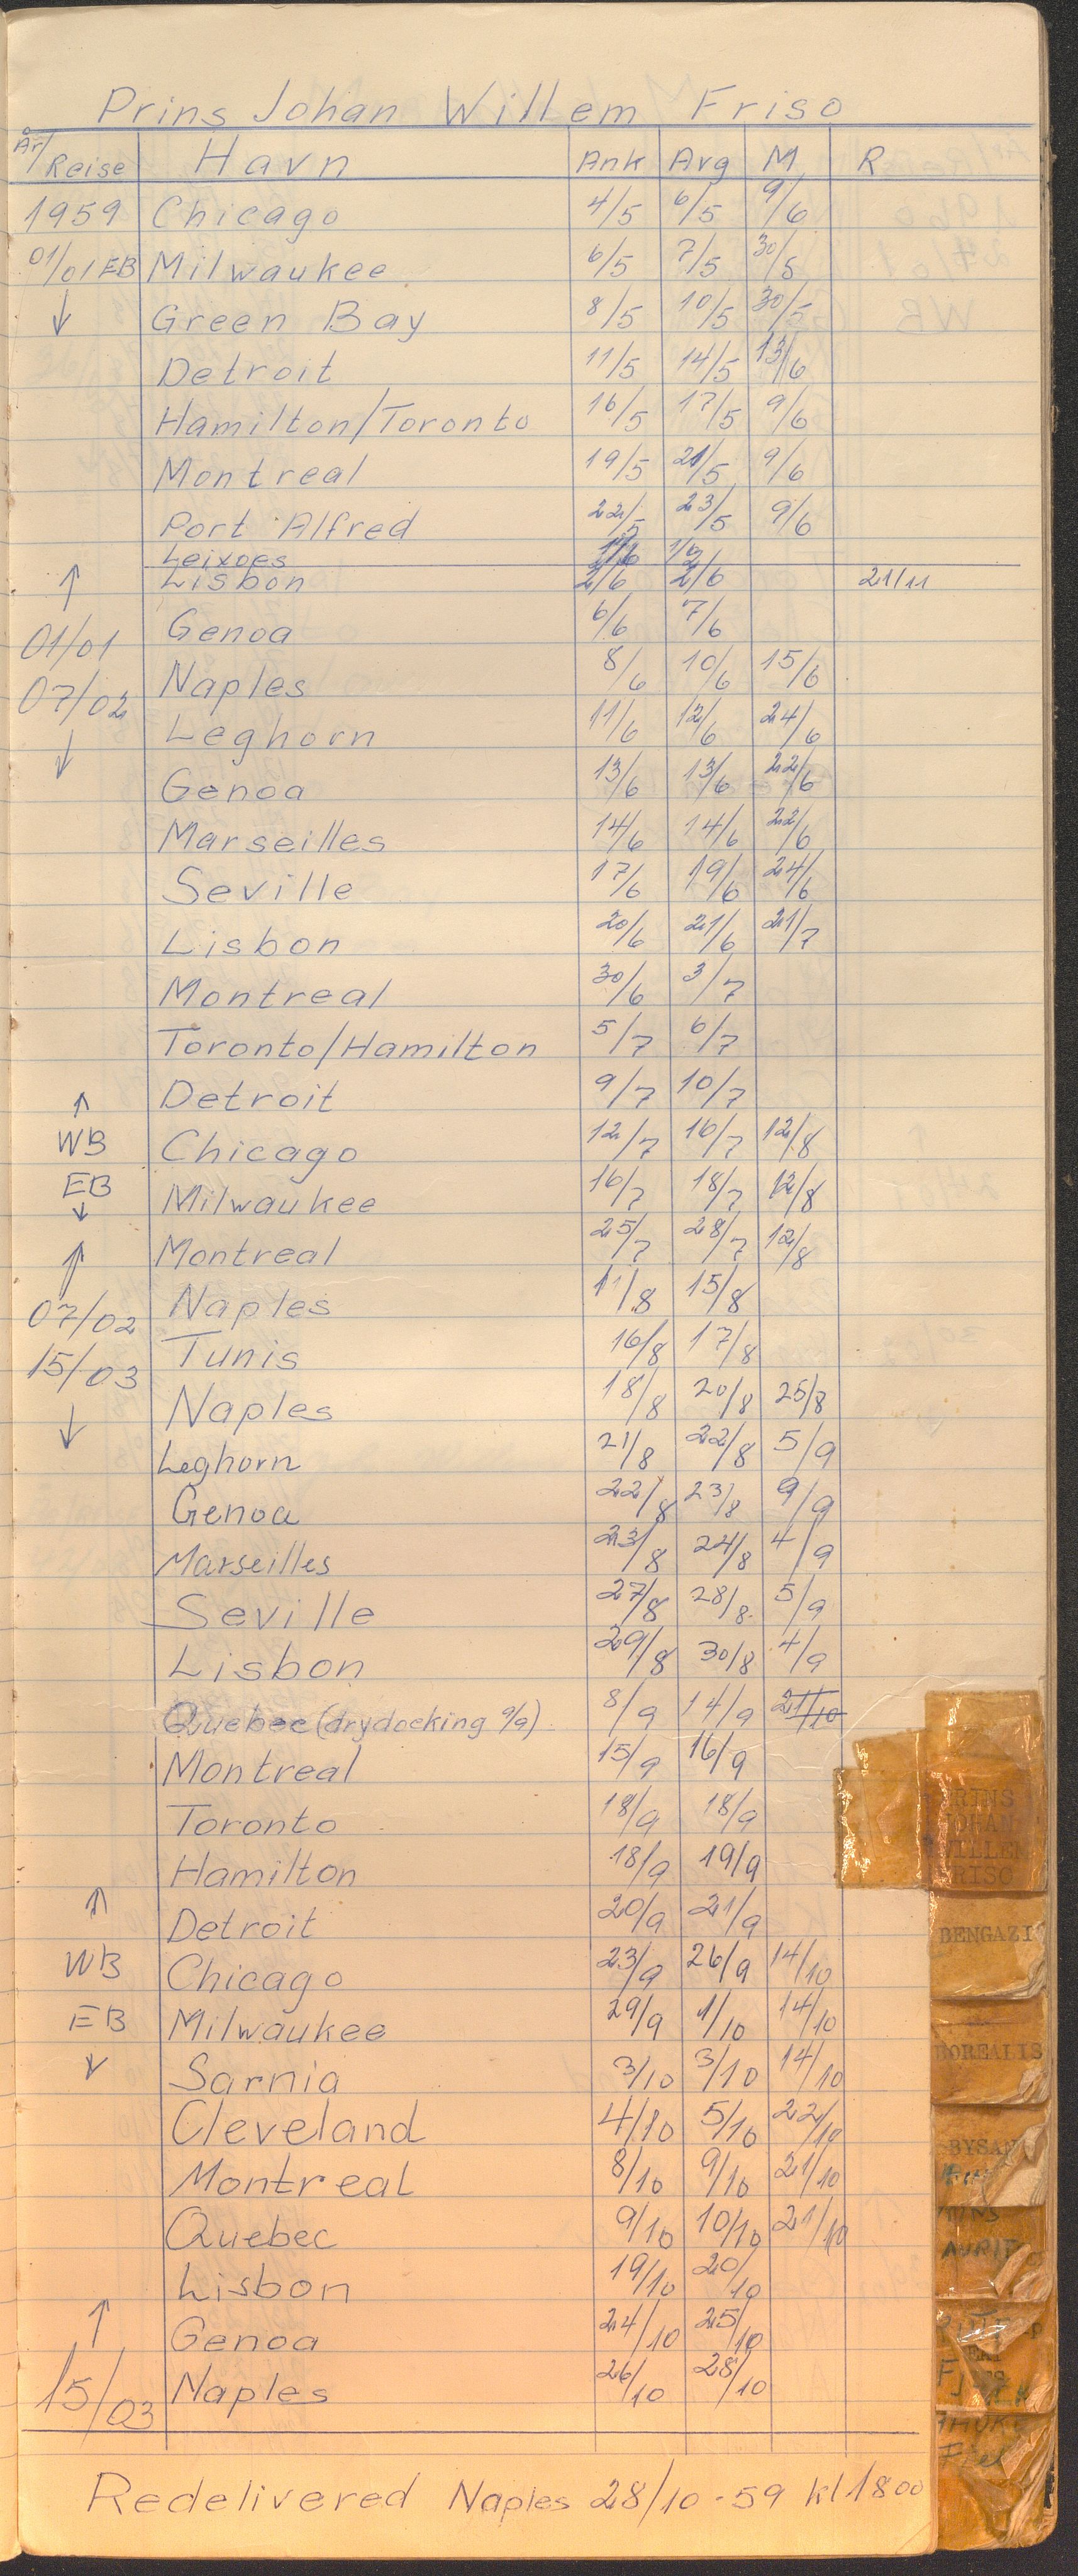 Prins Johan Willem Friso
År/Reise Havn Ank Avg M R
1959 Chicago 4/5 6/5 9/6
01/01 EB Milwaukee 6/5 7/5 30/5
↓ Green Bay 8/5 10/5 30/5
Detroit 11/5 14/5 13/6
Hamilton/Toronto 16/5 17/5 9/6
Montreal 19/5 21/5 9/6
Port Alfred 22/5 23/5 9/6
Leixoes 1/6
↑ Lisbon 2/6 2/6 21/11
01/01 Genoa 6/6 7/6
07/02 Naples 8/6 10/6 15/6
↓ Leghorn 11/6 12/6 24/6
Genoa 13/6 13/6 22/6
Marseilles 14/6 14/6 22/6
Seville 17/6 19/6 24/6
Lisbon 20/6 21/6 21/7
Montreal 30/6 3/7
Toronto/Hamilton 5/7 6/7
↑ Detroit 9/7 10/7
WB Chicago 12/7 16/7 12/8
EB ↓ Milwaukee 16/7 18/7 12/8
↑ Montreal 25/7 28/7 12/8
07/02 Naples 11/8 15/8
15/03 Tunis 16/8 17/8
↓ Naples 18/8 20/8 25/8
Leghorn 21/8 22/8 5/9
Genoa 22/8 23/8 9/9
Marseilles 23/8 24/8 4/9
Seville 27/8 28/8 5/9
Lisbon 29/8 30/8 4/9
Quebec (drydocking 9/9) 8/9 14/9 21/10
Montreal 15/9 16/9
Toronto 18/9 18/9
Hamilton 18/9 19/9
↑ Detroit 20/9 21/9
WB Chicago 23/9 26/9 14/10
EB Milwaukee 29/9 1/10 14/10
↓ Sarnia 3/10 3/10 14/10
Cleveland 4/10 5/10 22/10
Montreal 8/10 9/10 21/10
Quebec 9/10 10/10 21/10
Lisbon 19/10 20/10
↑ Genoa 24/10 25/10
15/03 Naples 26/10 28/10
Redelivered Naples 28/10-59 kl 1800
PRINS
JOHAN
WILLEM
FRISO
BENGAZI
BOREALIS
BYSAN